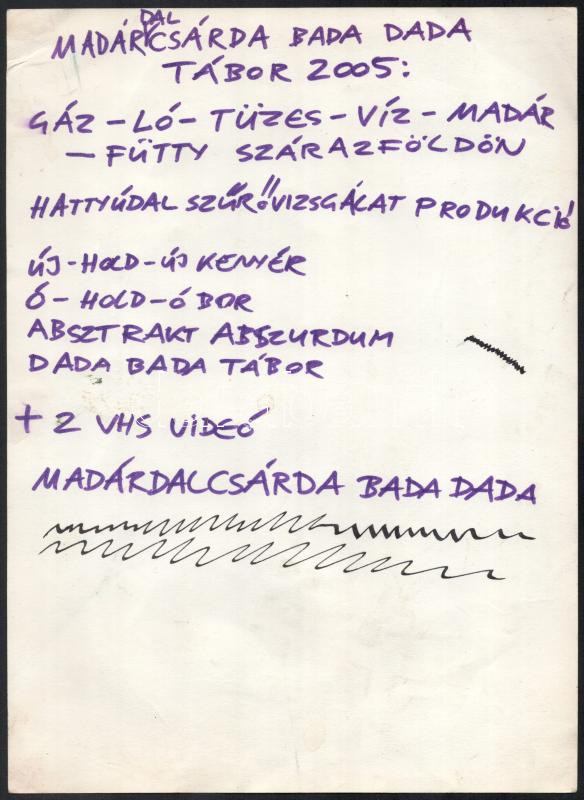 DAL
MADÁRCSÁRDA BADA DADA
TÁBOR 2005:
GÁZ - LÓ - TÜZES - VÍZ - MADÁR
- FÜTTY SZÁRAZFÖLDÖN
HATTYÚDAL SZŰRŐVIZSGÁLAT PRODUKCIÓ
ÚJ-HOLD-ÚJ KENYÉR
Ó-HOLD-Ó BOR
ABSZTRAKT ABSZURDUM
DADA BADA TÁBOR
+ 2 VHS VIDEÓ
MADÁRDALCSÁRDA BADA DADA